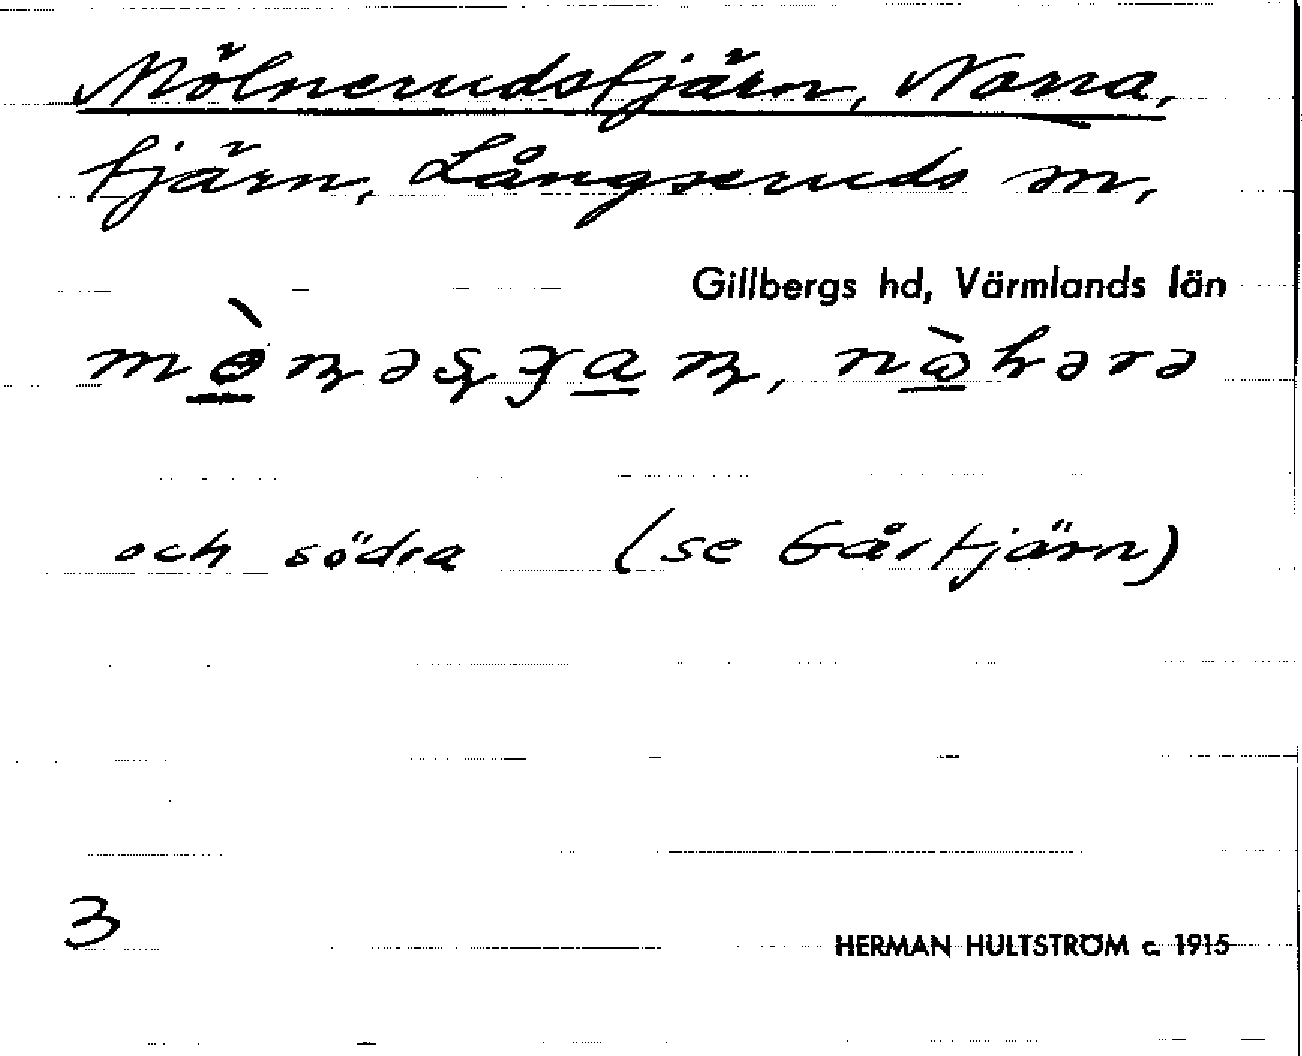 Mölnerudstjärn, Norra,
tjärn, Långseruds sn,
Gillbergs hd, Värmlands län
och södra (se Gårtjärn)
3
HERMAN HULTSTRÖM c. 1915